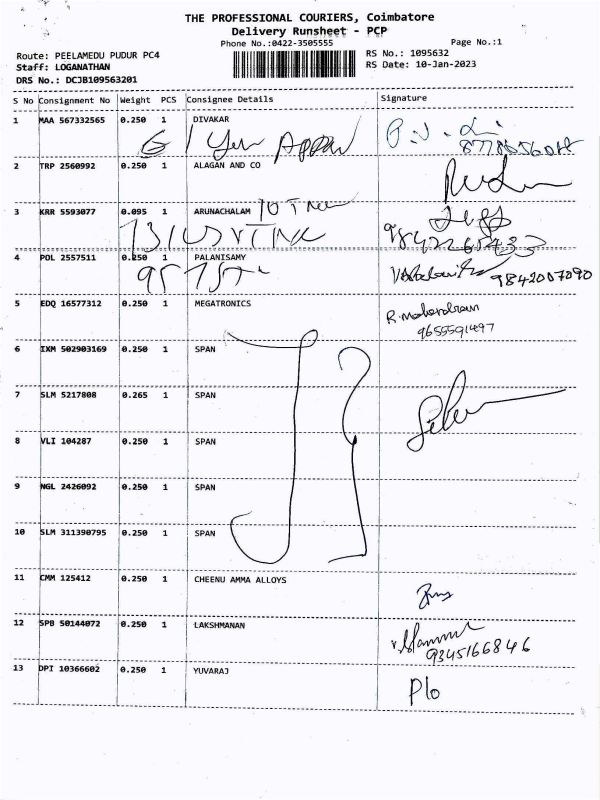 THE PROFESSIONAL COURIERS, Coimbatore
Delivery Runsheet - PCP
Phone No.:0422-3505555 Page No.:1
Route: PEELAMEDU PUDUR PC4 RS No.: 1095632
Staff: LOGANATHAN RS Date: 10-Jan-2023
DRS No.: DCJB109563201
S No Consignment No Weight PCS Consignee Details Signature
1 MAA 567332565 0.250 1 DIVAKAR
2 TRP 2560992 0.250 1 ALAGAN AND CO
3 KRR 5593077 0.095 1 ARUNACHALAM
4 POL 2557511 0.250 1 PALANISAMY
9842007090
5 EDQ 16577312 0.250 1 MEGATRONICS
R. mahendran
9655591497
6 IXM 502903169 0.250 1 SPAN
7 SLM 5217808 0.265 1 SPAN
8 VLI 104287 0.250 1 SPAN
9 NGL 2426092 0.250 1 SPAN
10 SLM 311390795 0.250 1 SPAN
11 CMM 125412 0.250 1 CHEENU AMMA ALLOYS
12 SPB 50144072 0.250 1 LAKSHMANAN
9345166846
13 DPI 10366602 0.250 1 YUVARAJ